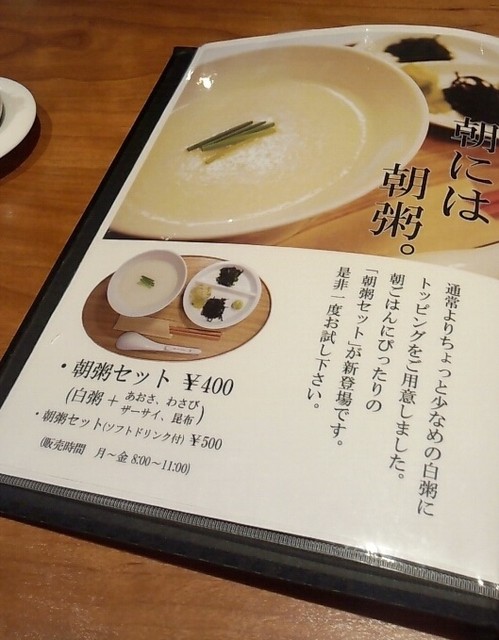 朝には
朝粥。
通常よりちょっと少なめの白粥に
トッピングをご用意しました。
朝ごはんにぴったりの
「朝粥セット」が新登場です。
是非一度お試し下さい。
・朝粥セット ¥400
(白粥 + あおさ、わさび
ザーサイ、昆布)
・朝粥セット(ソフトドリンク付) ¥500
(販売時間 月～金 8:00～11:00)